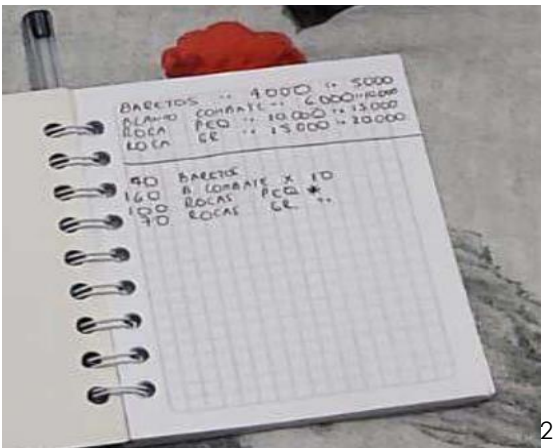 BARETOS " 4000 " 5000
BLANCO COMBATE " 6.000 " 10.000
ROCA PEQ " 10.000 " 15.000
ROCA GR " 15.000 " 20.000
40 BARETOS
160 B COMBATE X 10
100 ROCAS PEQ *
70 ROCAS GR "
2